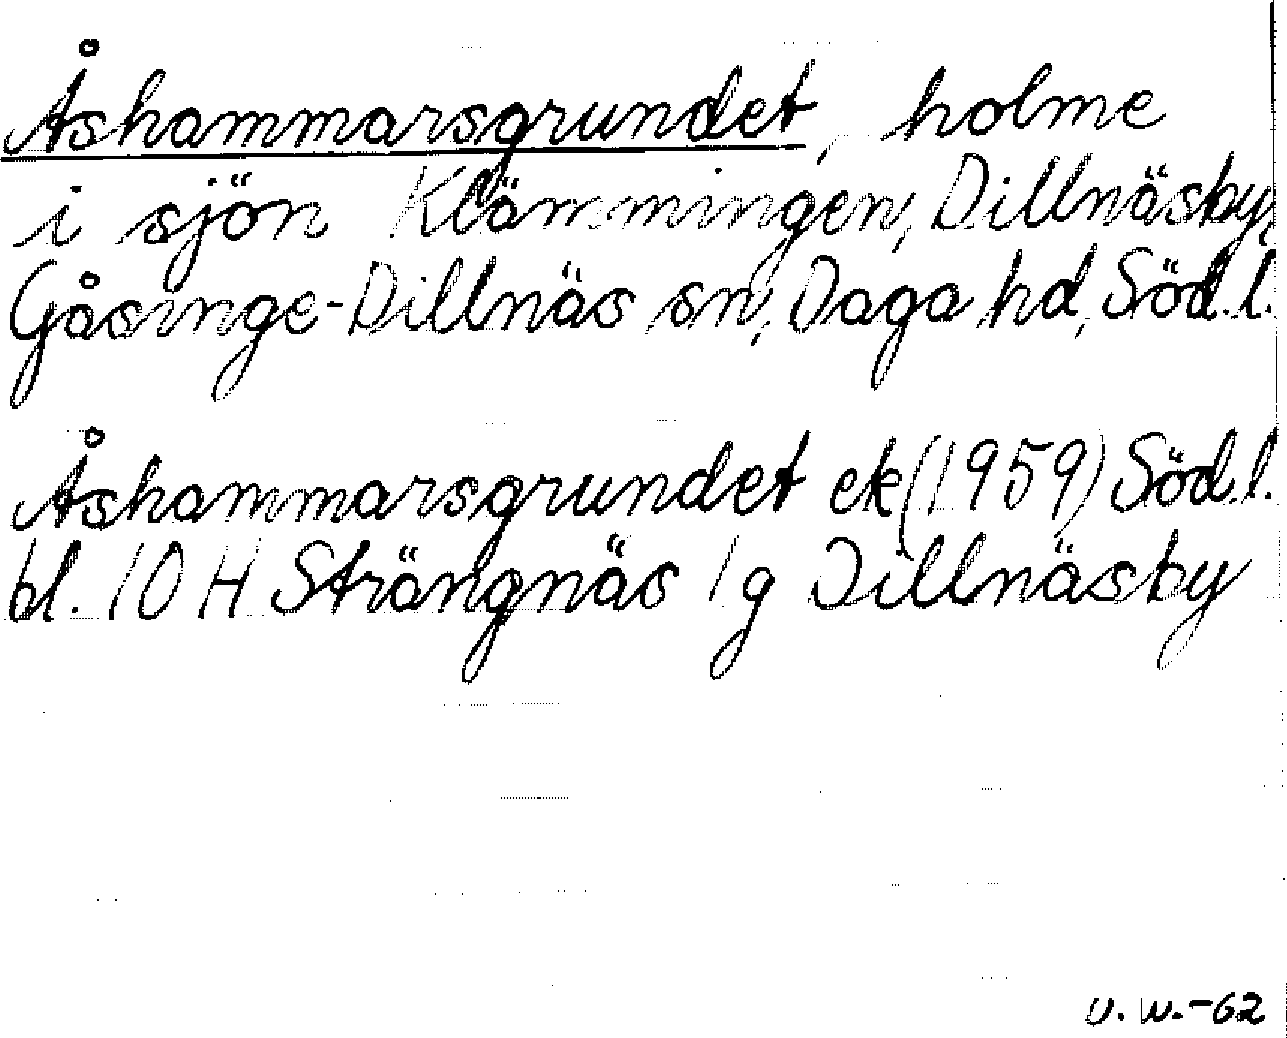 Åshammarsgrundet, holme
i sjön Klämmingen, Dillnäsby,
Gåsinge-Dillnäs sn, Daga hd, Söd.l.
Åshammarsgrundet ek (1959) Söd.l.
bl. 10 H Strängnäs 1 g Dillnäsby
U.W.-62